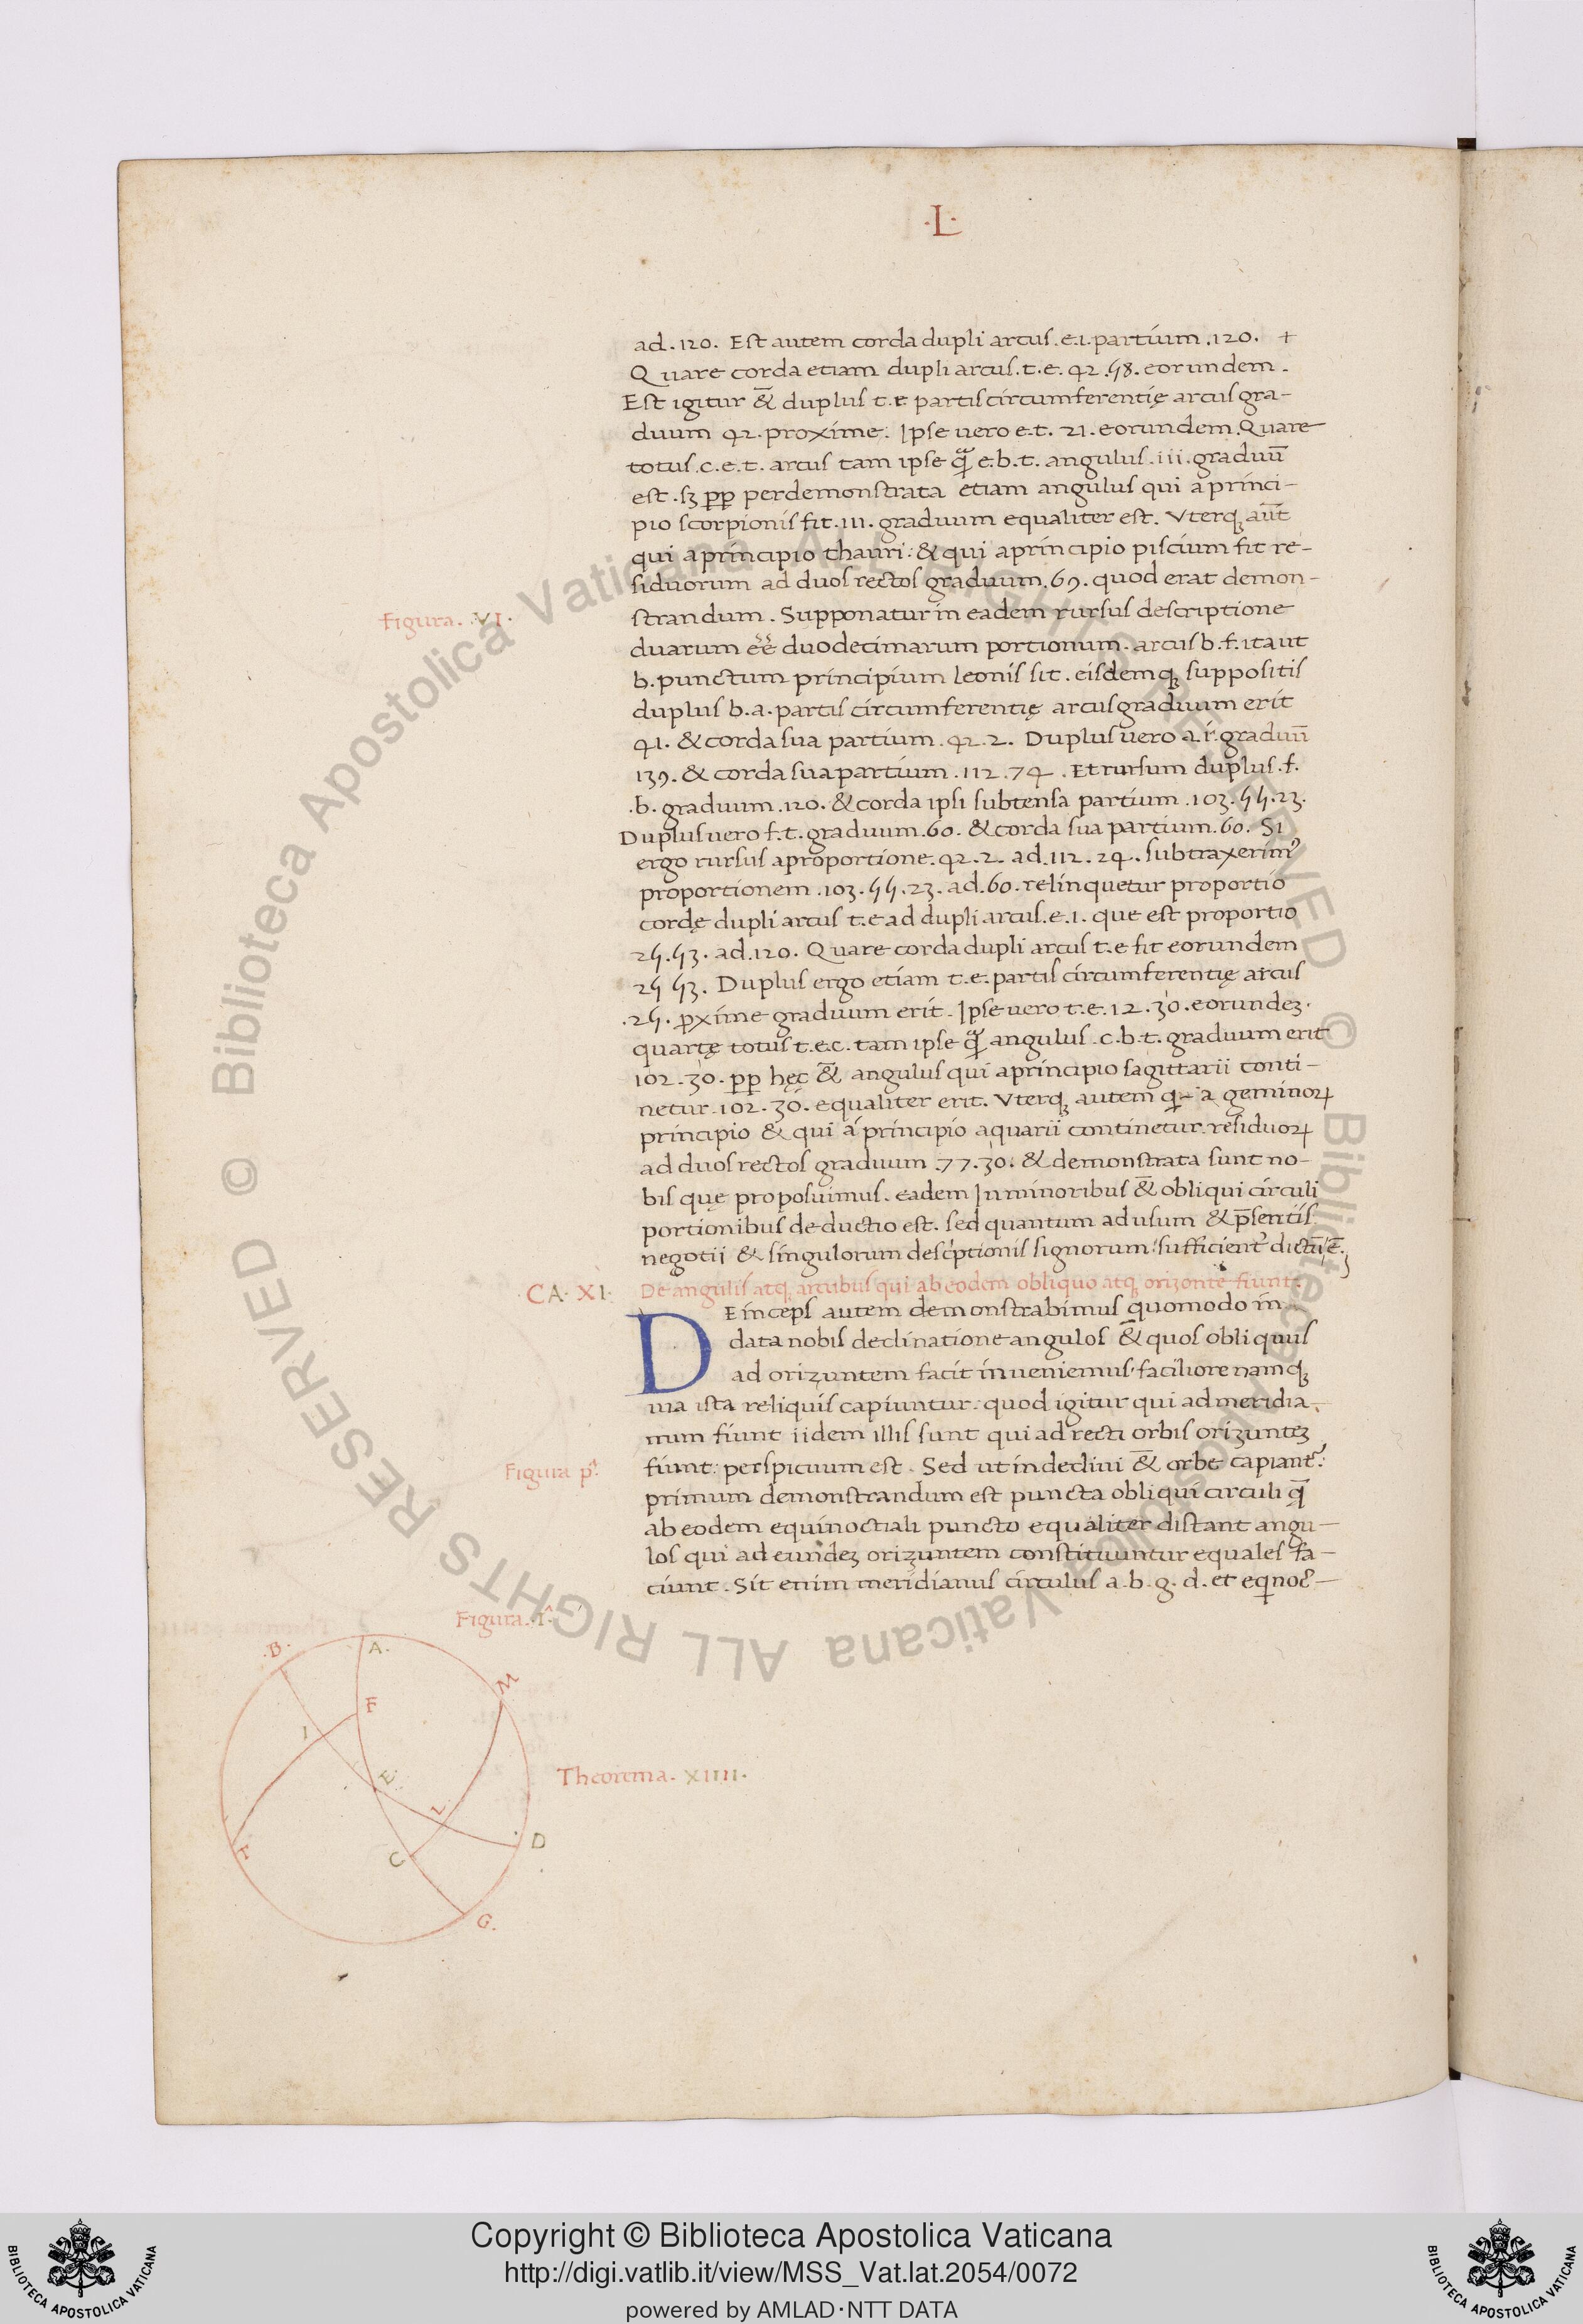 ·L·
ad .120. Est autem corda dupli arcus .e.i. partium .120. +
Quare corda etiam dupli arcus .t.e. 42.58. eorundem.
Est igitur &̄ duplus t.e partis circumferentię arcus gra-
duum 42. proxime. Ipse uero e.t. 21. eorundem. Quare
totus .c.e.t. arcus tam ipse q̃ e.b.t. angulus .iii. graduū
est .sꝫ ꝑꝑ perdemonstrata etiam angulus qui a princi-
pio scorpionis fit .111. graduum equaliter est. Vterqꝫ aūt
qui a principio thauri: & qui a principio piscium fit re-
siduorum ad duos rectos graduum .69. quod erat demon-
strandum. Supponatur in eadem rursus descriptione
Figura. VI.
duarum ee duodecimarum portionum. arcus b.f. ita ut
b. punctum principium leonis sit. eisdemqꝫ suppositis
duplus b.a. partis circumferentię arcus graduum erit
41. & corda sua partium .42.2. Duplus uero a.f. graduū
139. & corda sua partium .112.24. Et rursum duplus .f.
.b. graduum .120. & corda ipsi subtensa partium .103.55.23.
Duplus uero f.t. graduum .60. & corda sua partium .60. Si
ergo rursus a proportione .42.2. ad .112.24. subtraxerimꝰ
proportionem .103.55.23. ad .60. relinquetur proportio
cordę dupli arcus t.e ad dupli arcus .e.i. que est proportio
25.53. ad .120. Quare corda dupli arcus t.e fit eorundem
25 53. Duplus ergo etiam t.e. partis circumferentię arcus
.25. ꝓxime graduum erit. Ipse uero t.e. 12.30. eorundeꝫ.
quartę totus t.e.c. tam ipse q̃ angulus .c.b.t. graduum erit
102.30. ꝑꝑ hęc &̄ angulus qui a principio sagittarii conti-
netur .102.30. equaliter erit. Vterqꝫ autem q̣ - a geminoꝝ
principio & qui á principio aquarii continetur residuoꝝ
ad duos rectos graduum .77.30. & demonstrata sunt no-
bis quę proposuimus. eadem In minoribus &̄ obliqui circuli
portionibus deductio est. sed quantum ad usum & p̄sentis
negotii & singulorum descͥptionis signorum: sufficientͬ dictū ē.
CA. XI. De angulis atqꝫ arcubus qui ab eodem obliquo atqꝫ orizonte fiunt.
DEinceps autem demonstrabimus quomodo in
data nobis declinatione angulos &̄ quos obliquus
ad orizuntem facit inueniemus. faciliore namqꝫ
uia ista reliquis capiuntur: quod igitur qui ad meridia-
num fiunt iidem illis sunt qui ad recti orbis orizunteꝫ
Figura pͣ.
fiunt: perspicuum est. Sed ut in decliui &̄ orbe capiantͬ:
primum demonstrandum est puncta obliqui circuli q̄
ab eodem equinoctiali puncto equaliter distant angu-
los qui ad eundeꝫ orizuntem constituuntur equales fa-
ciunt. Sit enim meridianus circulus a.b.g.d. et eqinoc̄-
Figura .I.
.B.
A.
M
F
I
E.
Theorema. XIIII.
L
D
C
G.
Copyright © Biblioteca Apostolica Vaticana
http://digi.vatlib.it/view/MSS_Vat.lat.2054/0072
powered by AMLAD·NTT DATA
BIBLIOTECA APOSTOLICA VATICANA
BIBLIOTECA APOSTOLICA VATICANA
© Biblioteca Apostolica Vaticana ALL RIGHTS RESERVED © Biblioteca Apostolica Vaticana ALL RIGHTS RESERVED